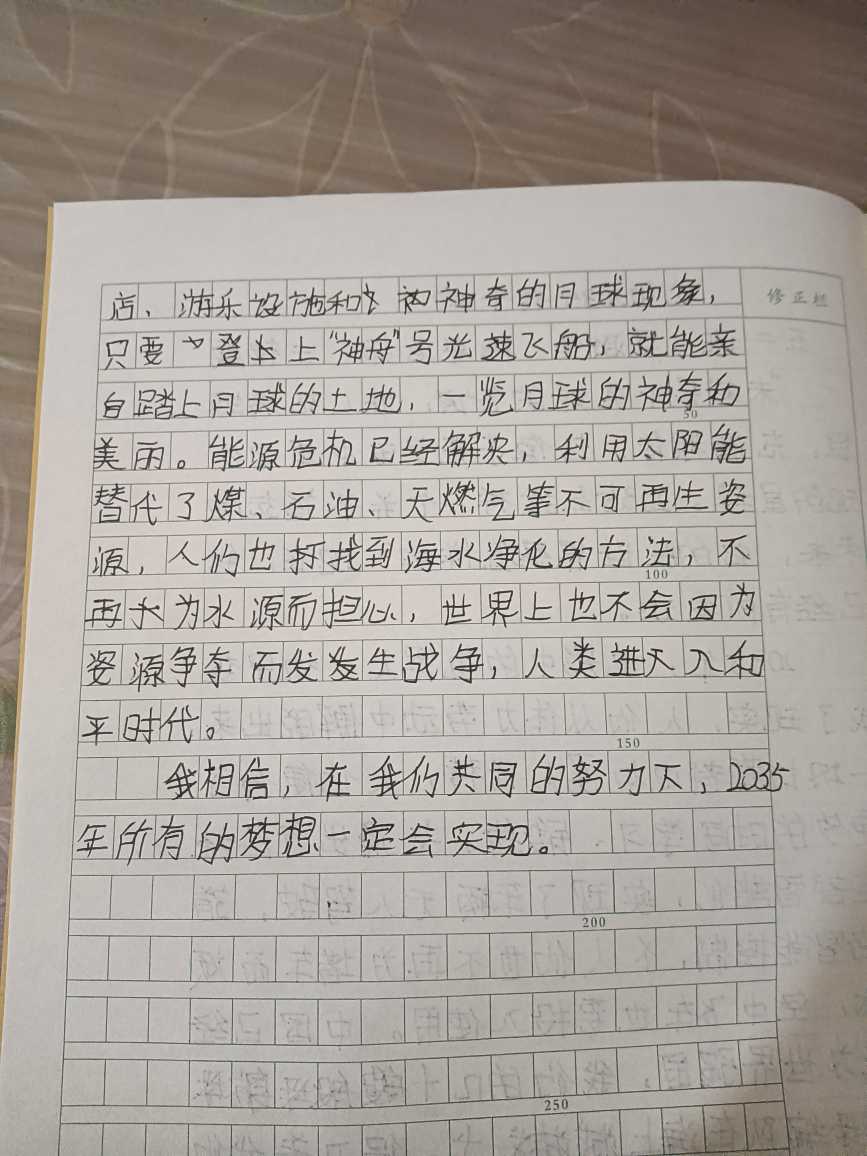 店、游乐设施和神奇的月球现象，
修正栏
只要登上"神舟"号光速飞船，就能亲
自踏上月球的土地，一览月球的神奇和
50
美丽。能源危机已经解决，利用太阳能
替代了煤、石油、天燃气等不可再生姿
源，人们也找到海水净化的方法，不
100
再为水源而担心，世界上也不会因为
姿源争夺而发发生战争，人类进入和
平时代。
150
我相信，在我们共同的努力下，2035
年所有的梦想一定会实现。
200
250